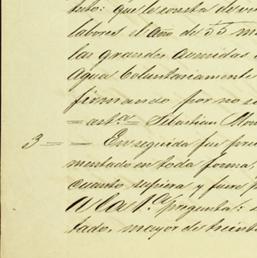 tuto: que le consta de v
labores el año de 55 m
las grandes avenidas
agua voluntariamente
firmando por no s
= art.º = Sebastian Mon
3 = = En seguida fué pre
mentado en toda forma,
cuanto supiera y fuere p
A la 1.ª pregunta:
tado, mayor de treint